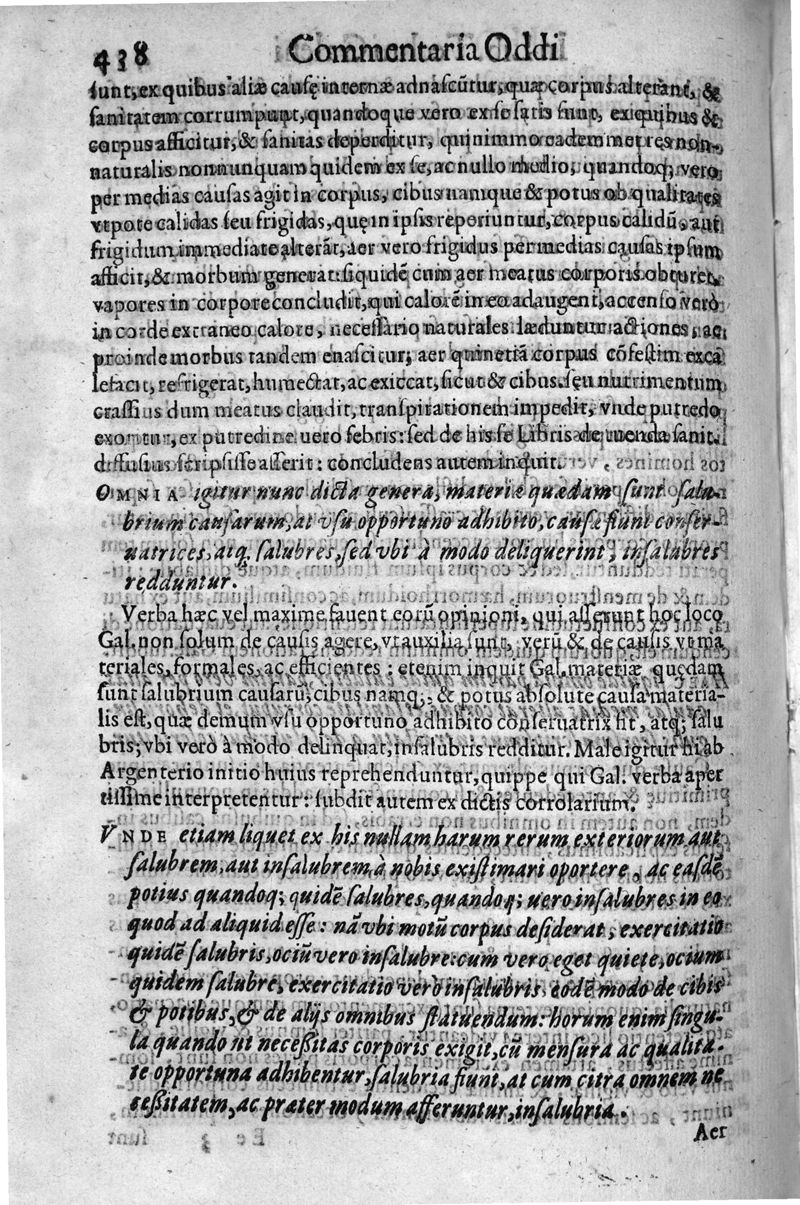 438 Commentaria Oddi
sunt, ex quibus aliæ causę internæ adnascūtur, quæ corpus alterāt, &
sanitatem corrumpunt, quandoque vero ex se satis sunt, ex quibus &
corpus afficitur, & sanitas deperditur, quinimmo eadem met res non
naturalis nonnunquam quidem ex se, ac nullo medio, quandoq; vero
per medias causas agit in corpus, cibus namque & potus ob qualitates
vtpote calidas seu frigidas, quę in ipsis reperiuntur, corpus calidū, aut
frigidum immediate alterāt, aer vero frigidus per medias causas ipsum
afficit, & morbum generat: siquidē cum aer meatus corporis obturet,
vapores in corpore concludit, qui calorē in eo adaugent, accenso verò
in corde extraneo calore, necessario naturales læduntur actiones, ac
proinde morbus tandem enascitur; aer quinetiā corpus cōfestim excа
lefacit, refrigerat, humectat, ac exiccat, sicut & cibus. seu nutrimentum
crassius dum meatus claudit, transpirationem impedit, vnde putredo
exoritur, ex putredine uero febris: sed de his se Libris de tuenda sanit.
diffusius scripsisse asserit: concludens autem inquit.
OMNIA igitur nunc dicta genera, materiæ quædam sunt salu-
brium causarum, at vsu opportuno adhibito, causæ fiunt conser-
uatrices, atq. salubres, sed vbi à modo deliquerint, insalubres
redduntur.
Verba hæc vel maxime fauent eorū opinioni, qui asserunt hoc loco
Gal. non solum de causis agere, vt auxilia sunt, verū & de causis vt ma
teriales, formales, ac efficientes: etenim inquit Gal. materiæ quędam
sunt salubrium causarū, cibus namq;, & potus absolute causa materia-
lis est, quæ demum vsu opportuno adhibito conseruatrix fit, atq; salu
bris; vbi verò à modo delinquat, insalubris redditur. Male igitur hi ab
Argenterio initio huius reprehenduntur, quippe qui Gal. verba aper
tissime interpretentur: subdit autem ex dictis corrolarium.
VNDE etiam liquet ex his nullam harum rerum exteriorum aut
salubrem, aut insalubrem à nobis existimari oportere, ac easdē
potius quandoq; quidē salubres, quandoq; uero insalubres in eo
quod ad aliquid esse: nā vbi motū corpus desiderat, exercitatio
quidē salubris, ociū vero insalubre: cum vero eget quiete, ocium
quidem salubre, exercitatio verò insalubris. eodē modo de cibis
& potibus, & de alijs omnibus statuendum: horum enim singu-
la quando ut necessitas corporis exigit, cū mensura ac qualita-
te opportuna adhibentur, salubria fiunt, at cum citra omnem ne
cessitatem, ac præter modum afferuntur, insalubria.
Aer